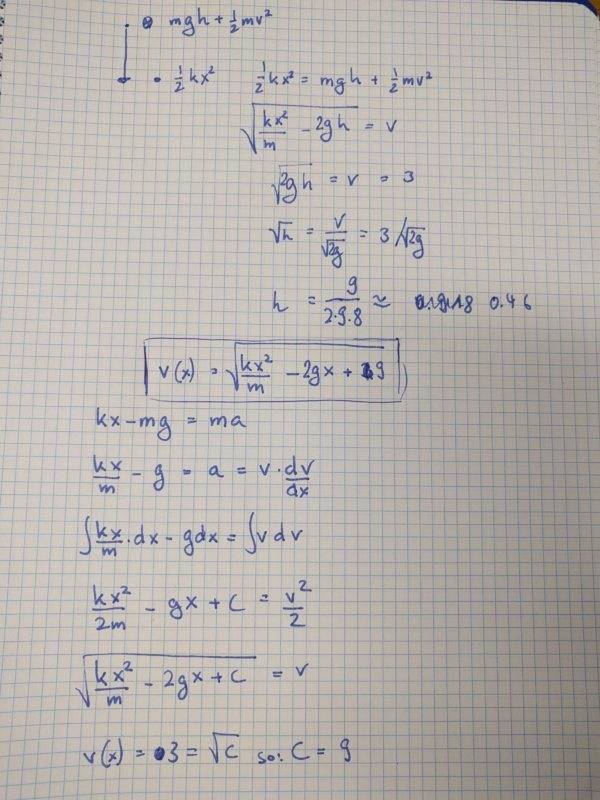 mgh + ½mv²
½kx²  ½kx² = mgh + ½mv²
√(kx²/m - 2gh) = v
√(2gh) = v = 3
√h = v/√2g = 3/√2g
h = 9/(2·9.8) ≈ 0.46
v(x) = √(kx²/m - 2gx + 9)
kx - mg = ma
kx/m - g = a = v · dv/dx
∫ kx/m · dx - gdx = ∫ v dv
kx²/2m - gx + C = v²/2
√(kx²/m - 2gx + C) = v
v(x) = 3 = √C so: C = 9